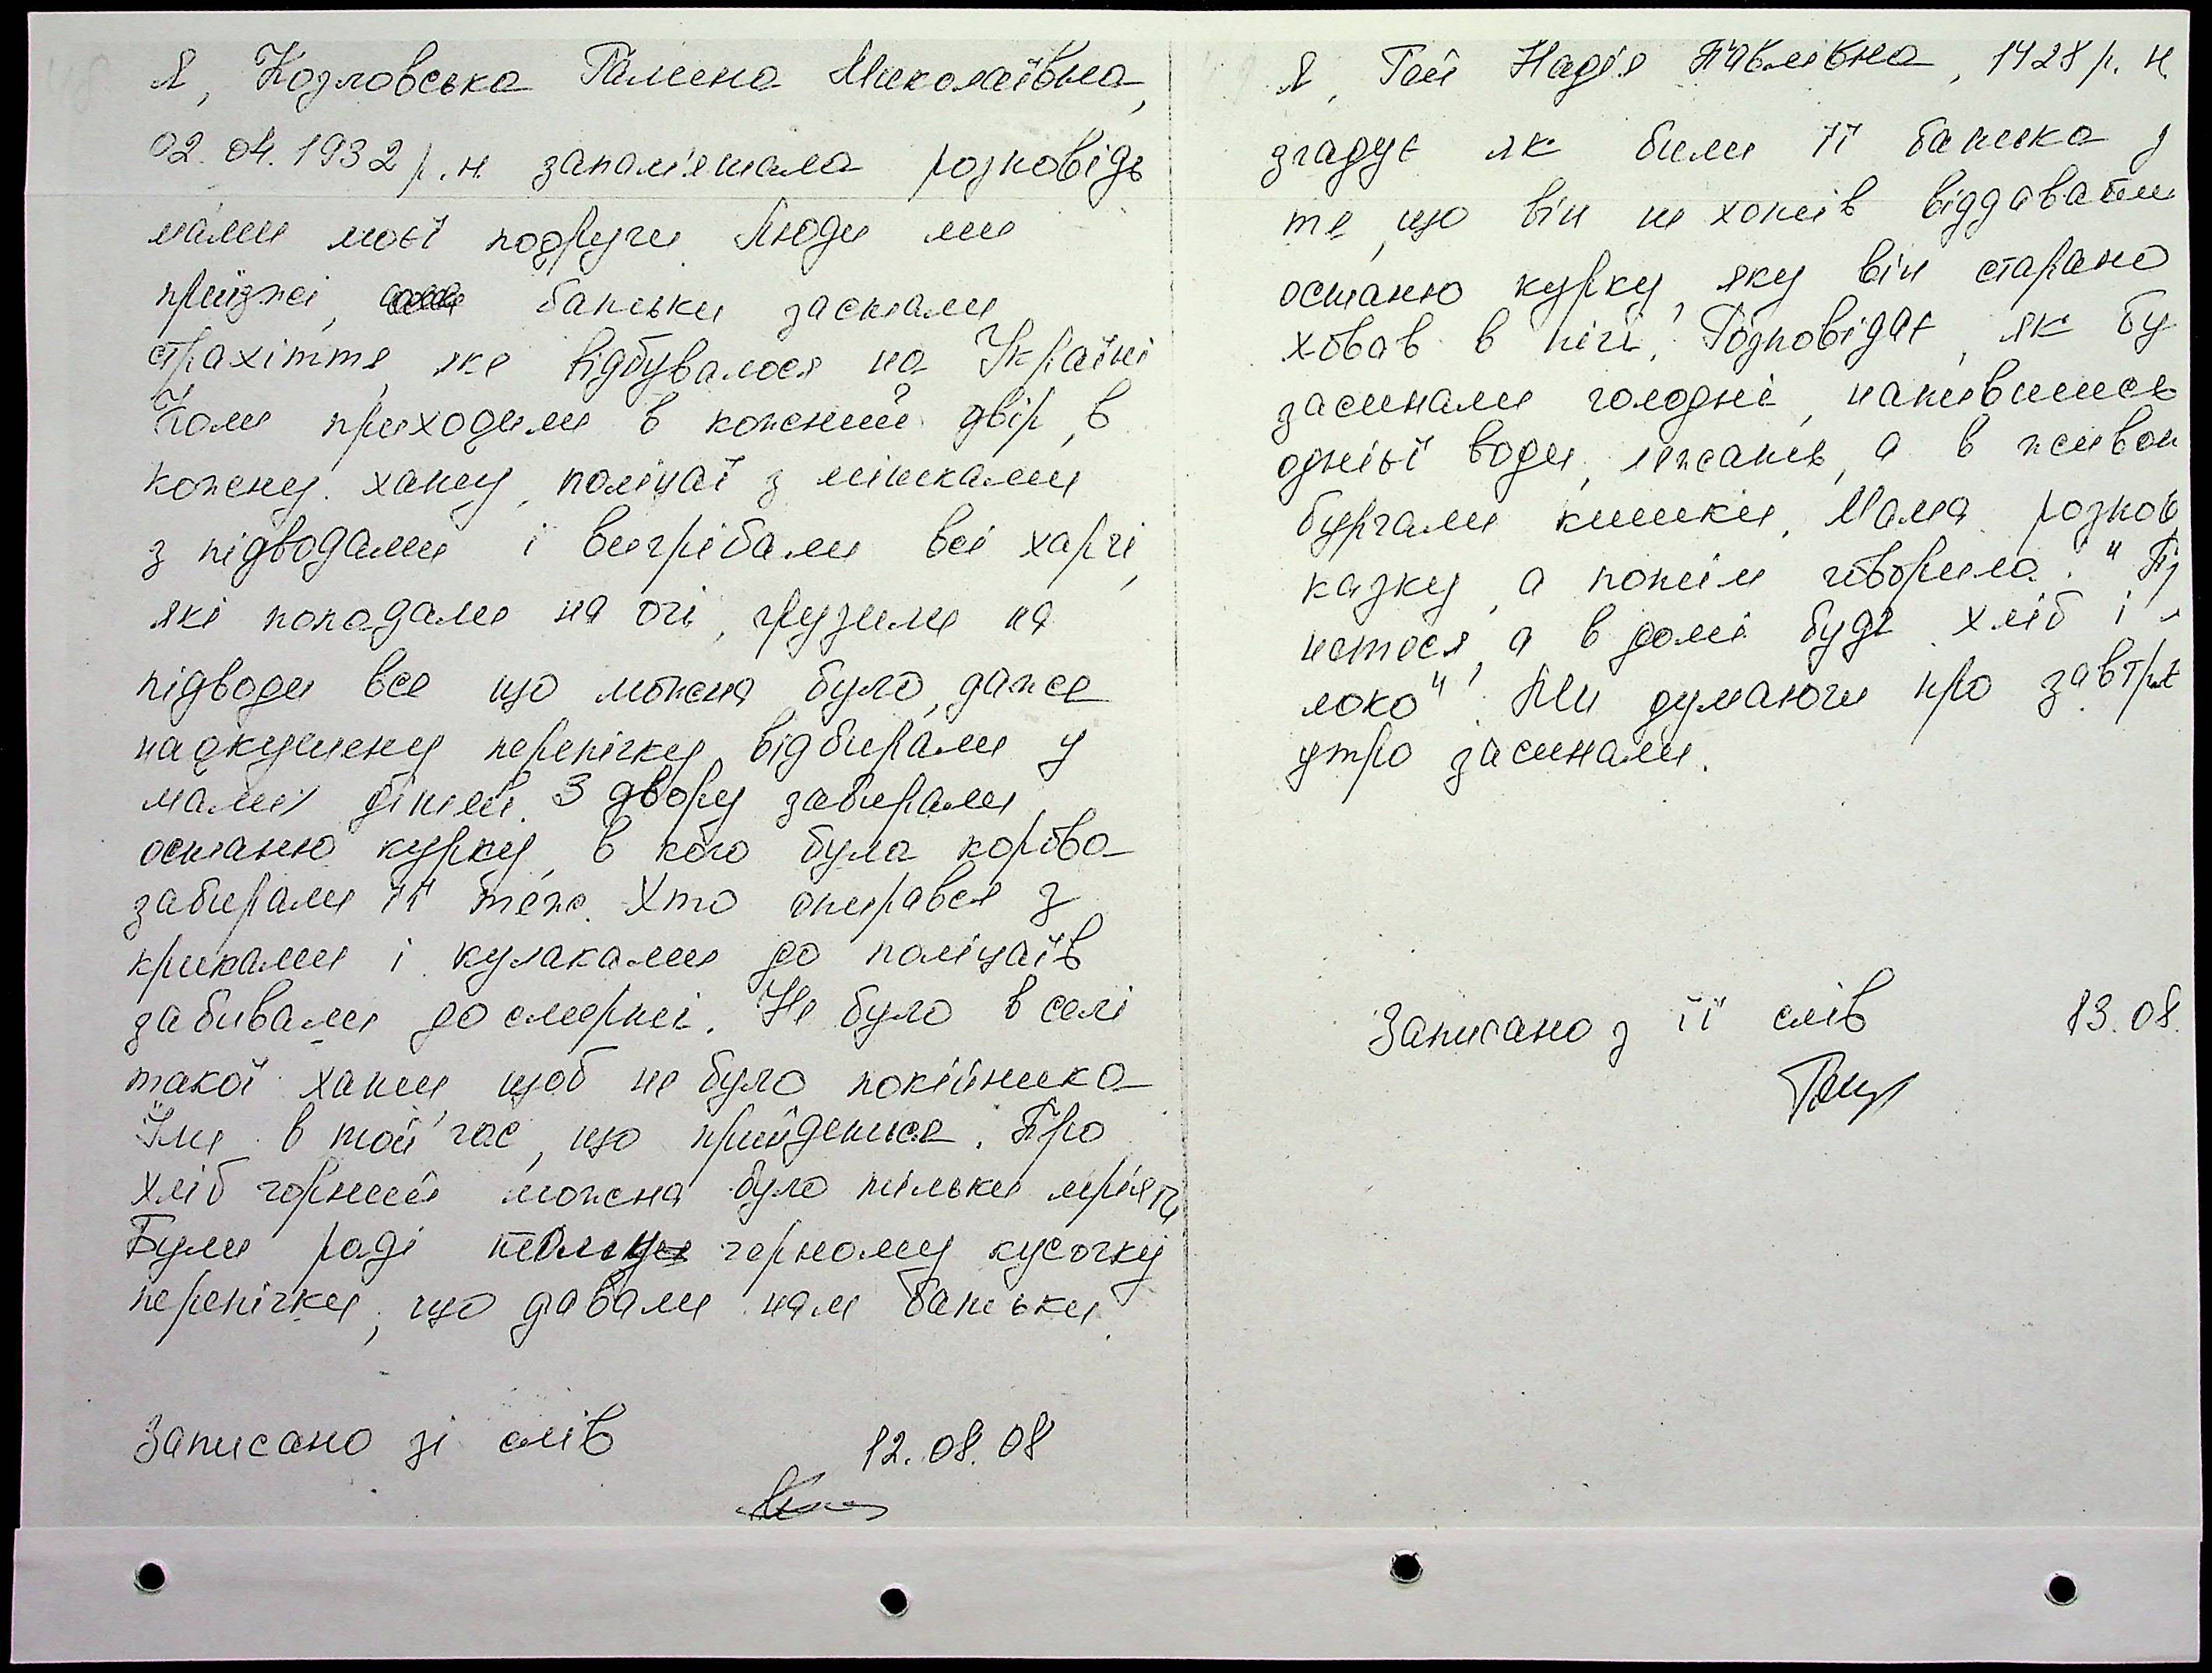 Я, Козловська Галина Миколаївна,
02.04.1932 р.н. запам'ятала розповідь
мами моєї подруги. Люди ми
приїзжі, батьки застали
страхіття, яке відбувалося на Україні
Коли приходили в кожний двір, в
кожну хату, поліцаї з мішками
з підводами і вигрібали всі харчі,
які попадали на очі, грузили на
підводи все що можна було, даже
надкушену перепічку відбирали у
малих дітей. З двору забирали
останню курку, в кого була корова
забирали її теж. Хто опирався з
криками і кулаками до поліцаїв
забивали до смерті. Не було в селі
такої хати щоб не було покійника
Їли в той час, що прийдеться. Про
хліб чорний можна було тільки мріять
Були раді чорному кусочку
перепічки, що давали нам батьки.
Записано зі слів 12.08.08
Я, Гай Надія Павлівна, 1928 р. н.
згадує як били її батька з
те, що він не хотів віддавати
останю курку, яку він старано
ховав в печі. Розповідає, як бу
засинали голодні, напившись
однієї води, лежать, а в живот
бурчали кишки. Мама розпов
казку, а потім говорила: "
а в домі буде хліб і
локо". Ми думаючи про завтрі
утро засинали.
Записано з її слів 13.08.